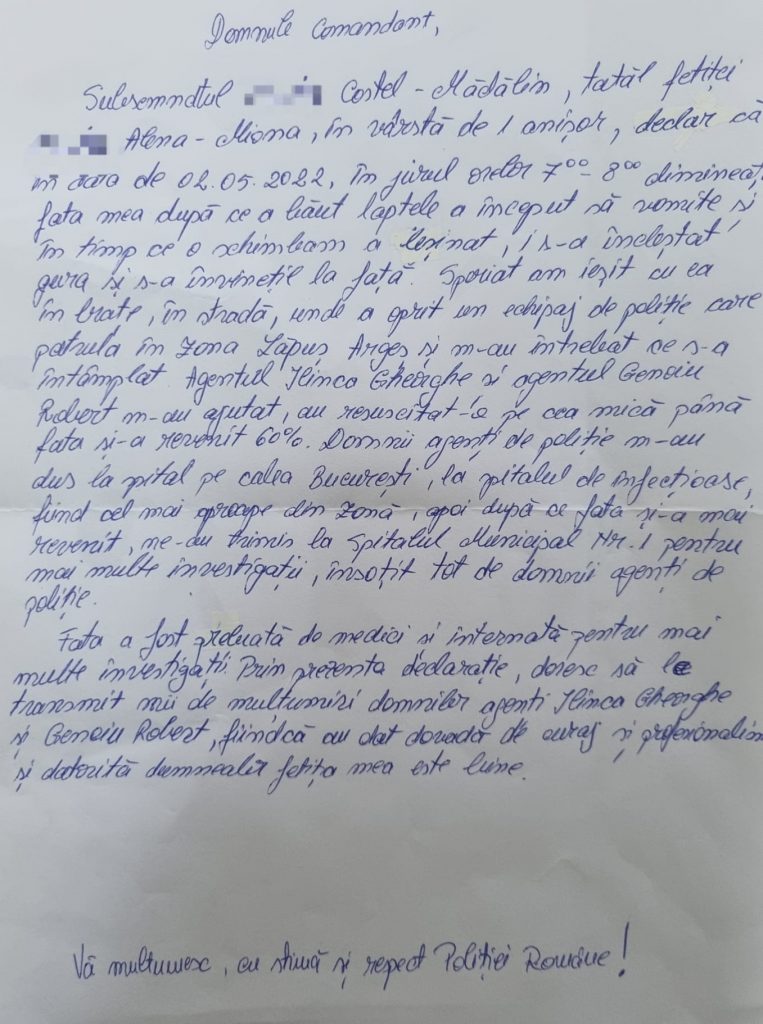 Domnule Comandant,
Subsemnatul Costel - Mădălin, tatăl fetiței
Alena - Miona, în vârstă de 1 anișor, declar că
în data de 02.05.2022, în jurul orelor 7⁰⁰ - 8⁰⁰ dimineaț
fata mea după ce a băut laptele a început să vomite și
în timp ce o schimbam a leșinat, i s-a încleștat
gura și s-a învinețit la față. Speriat am ieșit cu ea
în brațe, în stradă, unde a oprit un echipaj de poliție care
patrula în zona Lăpuș Argeș și m-au întrebat ce s-a
întâmplat. Agentul Ilinca Gheorghe și agentul Genoiu
Robert m-au ajutat, au resuscitat-o pe cea mică până
fata și-a revenit 60%. Domnii agenți de poliție m-au
dus la spital pe calea București, la spitalul de infecțioase,
fiind cel mai aproape din zonă, apoi după ce fata și-a mai
revenit, ne-au trimis la Spitalul Municipal Nr. 1 pentru
mai multe investigații, însoțit tot de domnii agenți de
poliție.
Fata a fost preluată de medici si internată pentru mai
multe investigații. Prin prezenta declarație, doresc să le
transmit mii de mulțumiri domnilor agenti Ilinca Gheorghe
și Genoiu Robert, fiindcă au dat dovadă de curaj și profesionalism
și datorită dumnealor fetița mea este bine.
Vă multumesc, cu stimă și respect Poliției Române!